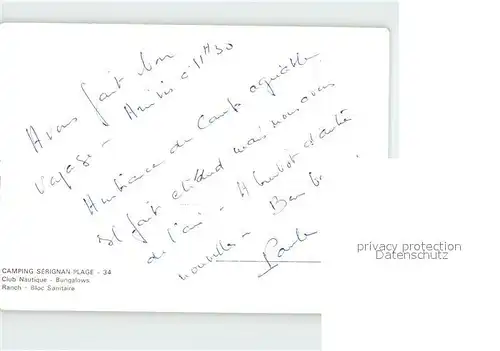 Avons fait bon
voyage - Arrivés à 11H30
Ambiance du Camp agréable.
Il fait chaud mais nous avons
de l'air - A bientôt d'autres
nouvelles - Bon
Paule
privacy protection
Datenschutz
CAMPING SERIGNAN-PLAGE - 34
Club Nautique - Bungalows
Ranch - Bloc Sanitaire